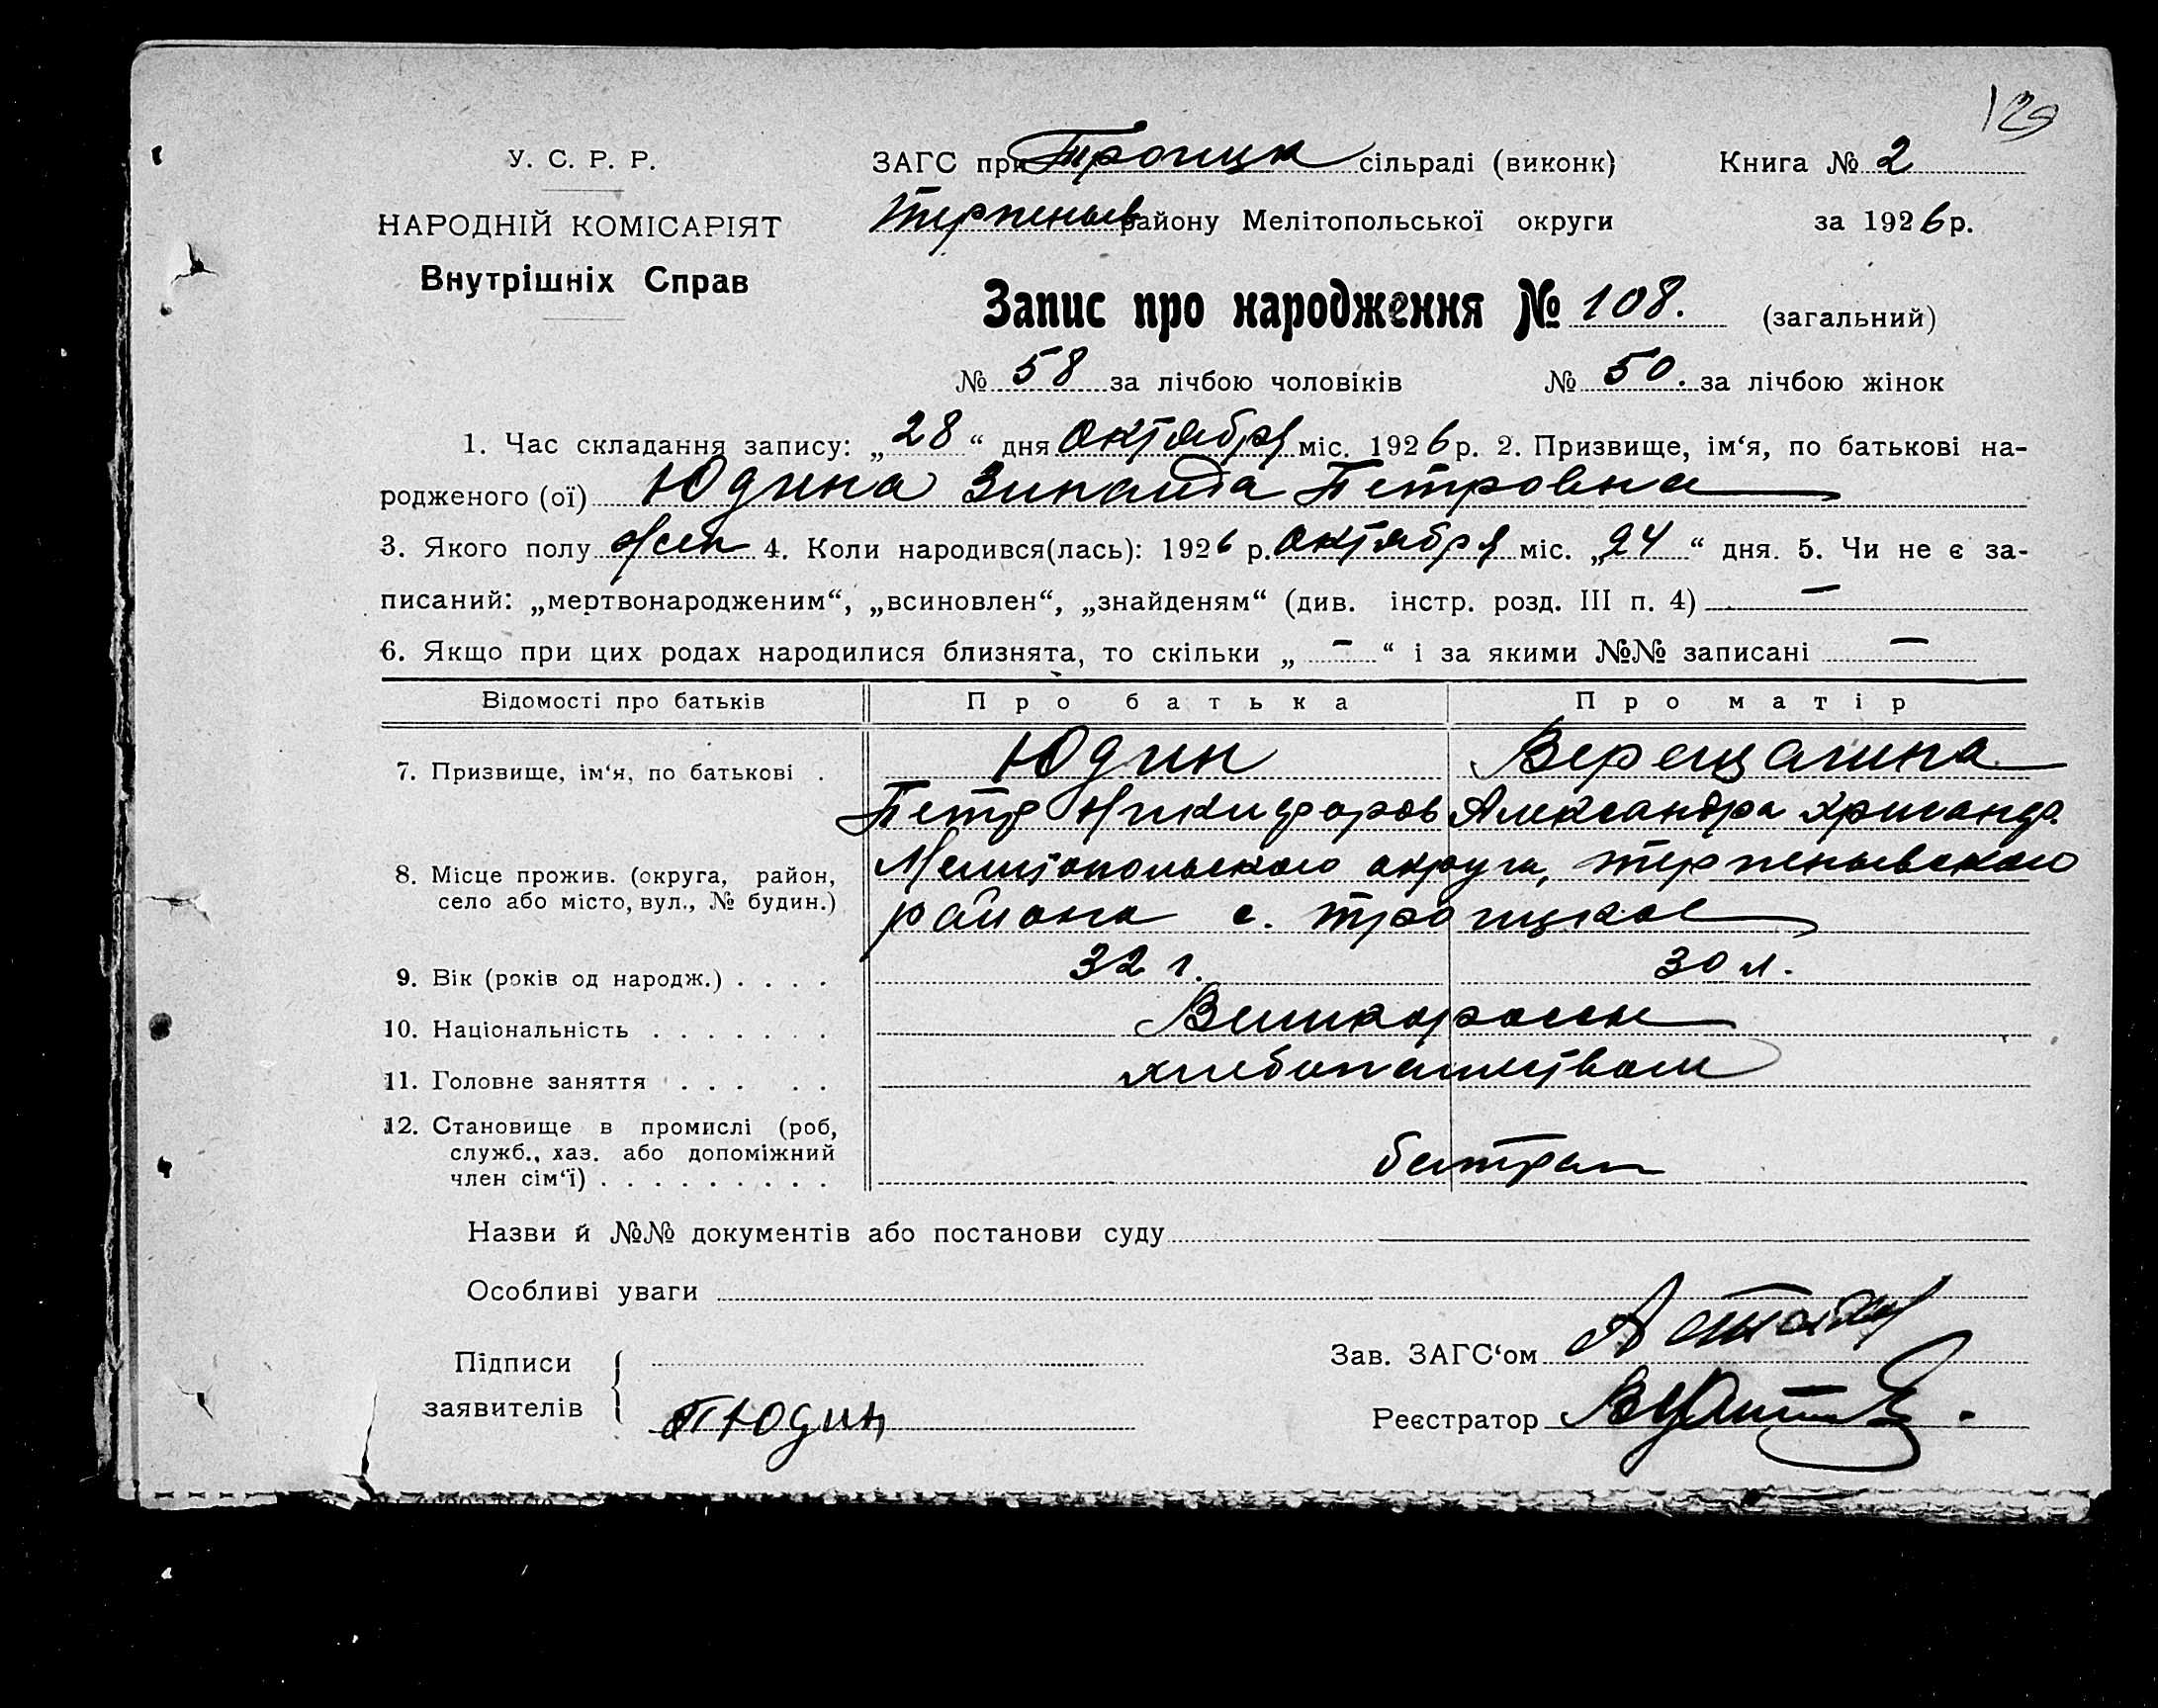 129
У. С. Р. Р.
НАРОДНІЙ КОМІСАРІЯТ
Внутрішніх Справ
ЗАГС при Троицк сільраді (виконк) Книга № 2
Терпеньев району Мелітопольської округи за 1926 р.
Запис про народження № 108. (загальний)
№ 58 за лічбою чоловіків № 50. за лічбою жінок
1. Час складання запису: „28“ дня октября міс. 1926 р. 2. Призвище, ім‘я, по батькові на-
родженого (ої) Юдина Зинаида Петровна
3. Якого полу жен 4. Коли народився(лась): 1926 р. октября міс. „24“ дня. 5. Чи не є за-
писаний: „мертвонародженим“, „всиновлен“, „знайденям“ (див. інстр. розд. III п. 4) —
6. Якщо при цих родах народилися близнята, то скільки „ — “ і за якими №№ записані —
Відомості про батьків Про батька Про матір
7. Призвище, ім‘я, по батькові . Юдин Верещагина
Петр Никифоров Александра Хрисанф.
8. Місце прожив. (округа, район, Мелитопольского округа, Терпеньевского
село або місто, вул., № будин.) района с. Троицкое
9. Вік (років од народж.) . . . . 32 г. 30 л.
10. Національність . . . . . . . Великороссы
11. Головне заняття . . . . . хлебопашеством
12. Становище в промислі (роб,
служб., хаз. або допоміжний
член сім‘ї) . . . . . . . . . батрак
Назви й №№ документів або постанови суду
Особливі уваги
Підписи
заявителів
П Юдин
Зав. ЗАГС‘ом
Реєстратор